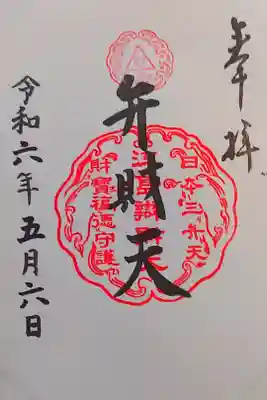 奉拝
日本三弁天
江島辯財天
財寶福徳守護
弁財天
令和六年五月六日